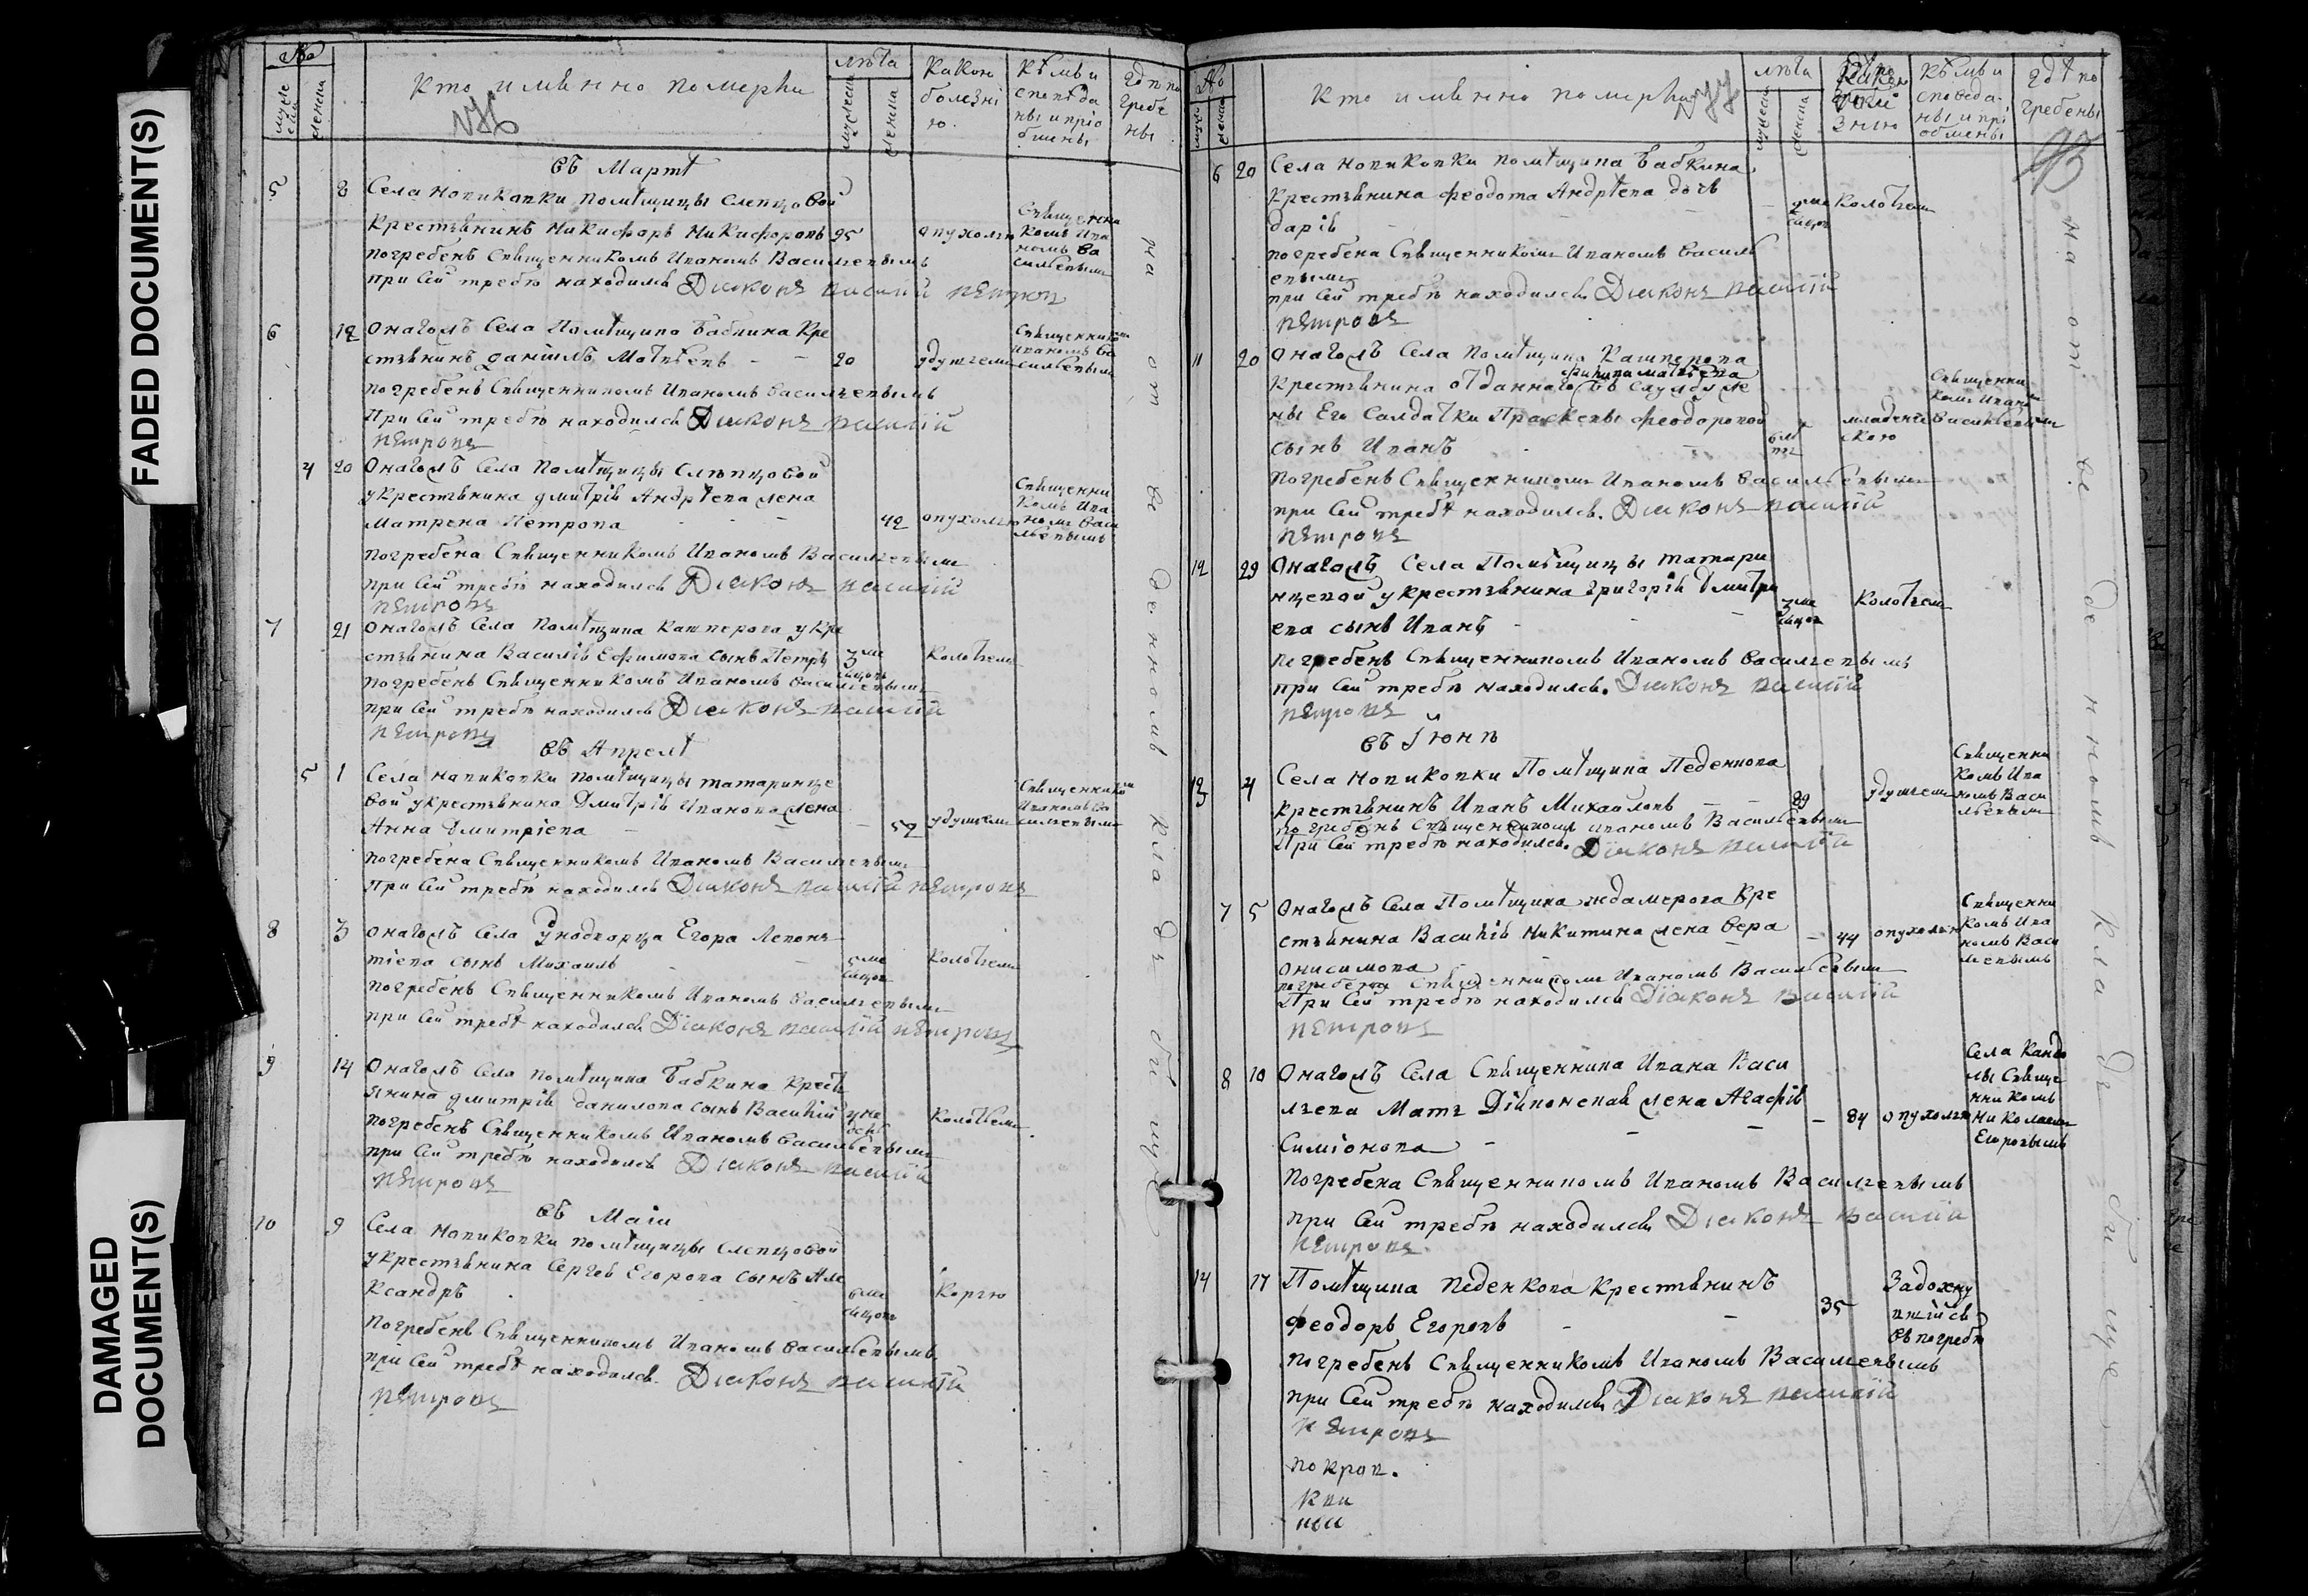 FADED DOCUMENT(S)
DAMAGED DOCUMENT(S)
№
мужеска
женска
Кто имѣнно померли
лѣта
мужеска
женска
Какою болезнію.
Кѣмъ исповѣданы и пріобщены
Гдѣ погребены
въ Мартѣ
5 8 Села Новиковки помѣщицы Слепцовой
Крестьянинъ Никифоръ Никифоровъ 95 опухолью Священникомъ Иваномъ Васильевымъ
погребенъ Священникомъ Иваномъ Васильевымъ
при сей требѣ находился Діаконъ Василій Петровъ
6 12 Онагожъ Села Помѣщика Бабкина Кре
стьянинъ Даніилъ Матвѣевъ 20 удушьемъ Священникомъ Иваномъ Васильевымъ
погребенъ Священникомъ Иваномъ Васильевымъ
При сей требѣ находился Діаконъ Василій
Петровъ
4 20 Онагожъ Села Помѣщицы Слѣпцовой
у крестьянина Дмитрія Андрѣева жена
Матрена Петрова 42 опухолью Священникомъ Иваномъ Васильевымъ
погребена Священникомъ Иваномъ Васильевымъ
при сей требѣ находился Діаконъ Василій
Петровъ
7 21 Онагожъ Села Помѣщика Кашперова у Кре
стьянина Василія Ефимова сынъ Петръ 3 месяцовъ Колотьемъ
погребенъ Священникомъ Иваномъ Васильевымъ
при сей требѣ находился Діаконъ Василій
Петровъ
въ Апрелѣ
5 1 Села Новиковки помѣщицы Татаринце
вой у крестьянина Дмитрія Иванова жена
Анна Дмитріева 52 удушьемъ Священникомъ Иваномъ Васильевымъ
погребена Священникомъ Иваномъ Васильевымъ
При сей требѣ находился Діаконъ Василій Петровъ
8 3 Онагожъ Села Уноднорца Егора Левонъ
тіева сынъ Михаилъ месяцовъ Колотьемъ
погребенъ Священникомъ Иваномъ Васильевымъ
при сей требѣ находился Діаконъ Василій Петровъ
9 14 Онагожъ Села помѣщика Бабкина Крест
янина Дмитрія Данилова сынъ Василій Колотьемъ
погребенъ Священникомъ Иваномъ Васильевымъ
при сей требѣ находился Діаконъ Василій
Петровъ
въ Маіи
10 9 Села Новиковки помѣщицы Слепцовой
у крестьянина Сергея Егорова сынъ Але
ксандръ 6 месяцовъ Корью
Погребенъ Священникомъ Иваномъ Васильевымъ
при сей требѣ находился Діаконъ Василій
Петровъ
на отведенномъ кладбищѣ
№
Кто имѣнно померли
лѣта
мужеска
женска
Кѣмъ исповеданы и пріобщены
Гдѣ погребены
6 20 Села Новиковки помѣщика Бабкина
Крестьянина Феодота Андрѣева дочь
Дарія месяцовъ Колотьемъ
погребена Священникомъ Иваномъ Василь
евымъ
при сей требѣ находился Діаконъ Василій
Петровъ
11 20 Онагожъ Села помѣщика Кашперова
Крестьянина отданнаго въ службу же
Филипа Матвѣева
ны Его Салдатки Прасковьи Феодоровой младенческою Священникомъ Иваномъ Васильевымъ
сынъ Иванъ 6 лѣтъ
погребенъ Священникомъ Иваномъ Васильевымъ
при сей требѣ находился. Діаконъ Василій
Петровъ
12 29 Онагожъ Села Помѣщицы Татари
нцевой у крестьянина Григорія Дмитри
ева сынъ Иванъ 3 месяцовъ Колотьем
погребенъ Священникомъ Иваномъ Васильевымъ
при сей требѣ находился. Діаконъ Василій
Петровъ
въ Іюнѣ
13 4 Села Новиковки Помѣщика Педенкова
крестьянинъ Иванъ Михаиловъ 29 удушьемъ Священникомъ Иваномъ Васильевымъ
погребенъ Священникомъ Иваномъ Васильевымъ
При сей требѣ находился. Діаконъ Василій
7 5 Онагожъ Села Помѣщика Ждамерова Кре
стьянина Василія Никитина жена Вера 44 опухолью Священникомъ Иваномъ Васильевымъ
Онисимова
погребена Священникомъ Иваномъ Васильевымъ
При сей требѣ находился Діаконъ Василій
Петровъ
8 10 Онагожъ Села Священника Ивана Васи
льева Мать Дьяконская жена Агафія 84 опухолью Села Кандалы Священникомъ Николаемъ Егоровымъ
Симіонова
Погребена Священникомъ Иваномъ Васильевымъ
при сей требѣ находился Діаконъ Василій
Петровъ
14 17 Помѣщика Педенкова Крестьянинъ
Феодоръ Егоровъ 35 Задохнувшійся въ погребѣ
погребенъ Священникомъ Иваномъ Васильевымъ
при сей требѣ находился Діаконъ Василій
Петровъ
на отведенномъ кладбищѣ